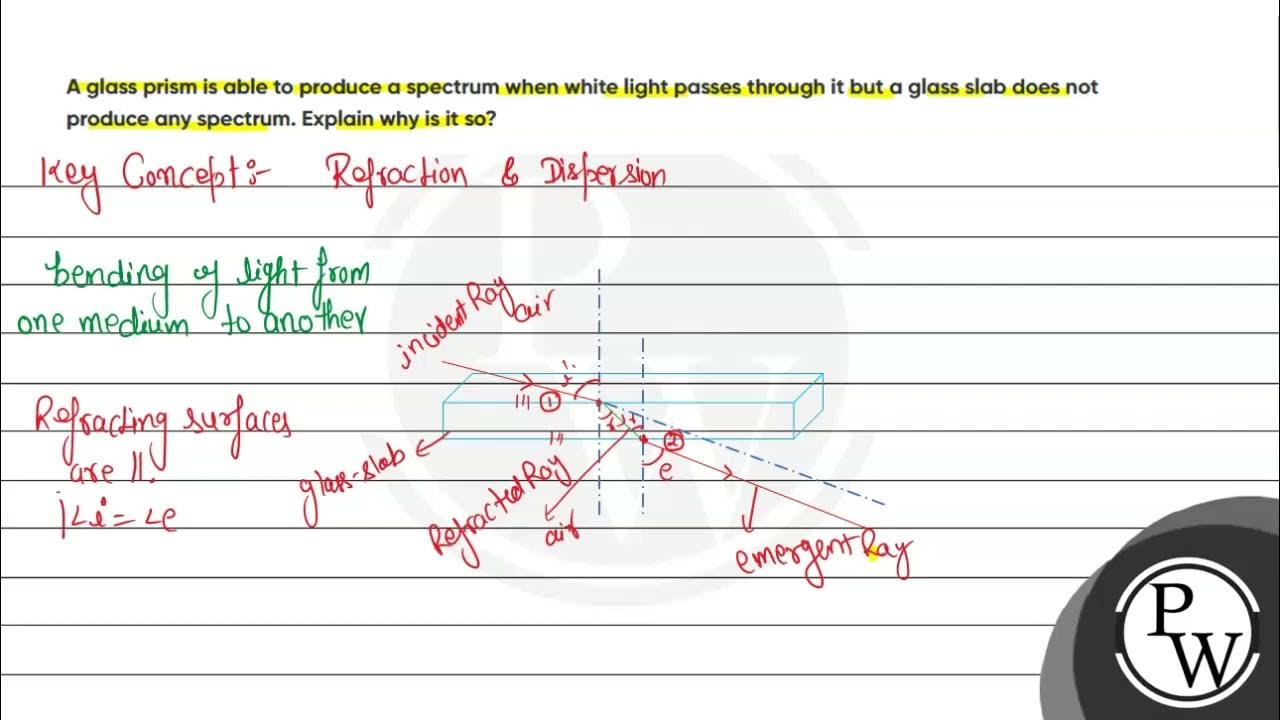 A glass prism is able to produce a spectrum when white light passes through it but a glass slab does not
produce any spectrum. Explain why is it so?
Key Concept:- Refraction & Dispersion
bending of light from
one medium to another
incident Ray
air
i
||| ①
Refracting surfaces
are ||.
∠i = ∠e
glass-slab
||
r
r
②
e
Refracted Ray
air
emergent Ray
PW
PW